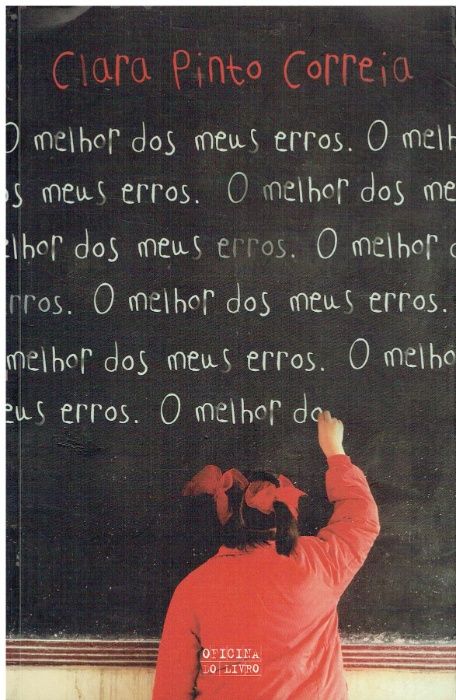 Clara Pinto Correia
O melhor dos meus erros. O melh
os meus erros. O melhor dos me
elhor dos meus erros. O melhor d
rros. O melhor dos meus erros.
melhor dos meus erros. O melho
eus erros. O melhor do
OFICINA
DO LIVRO